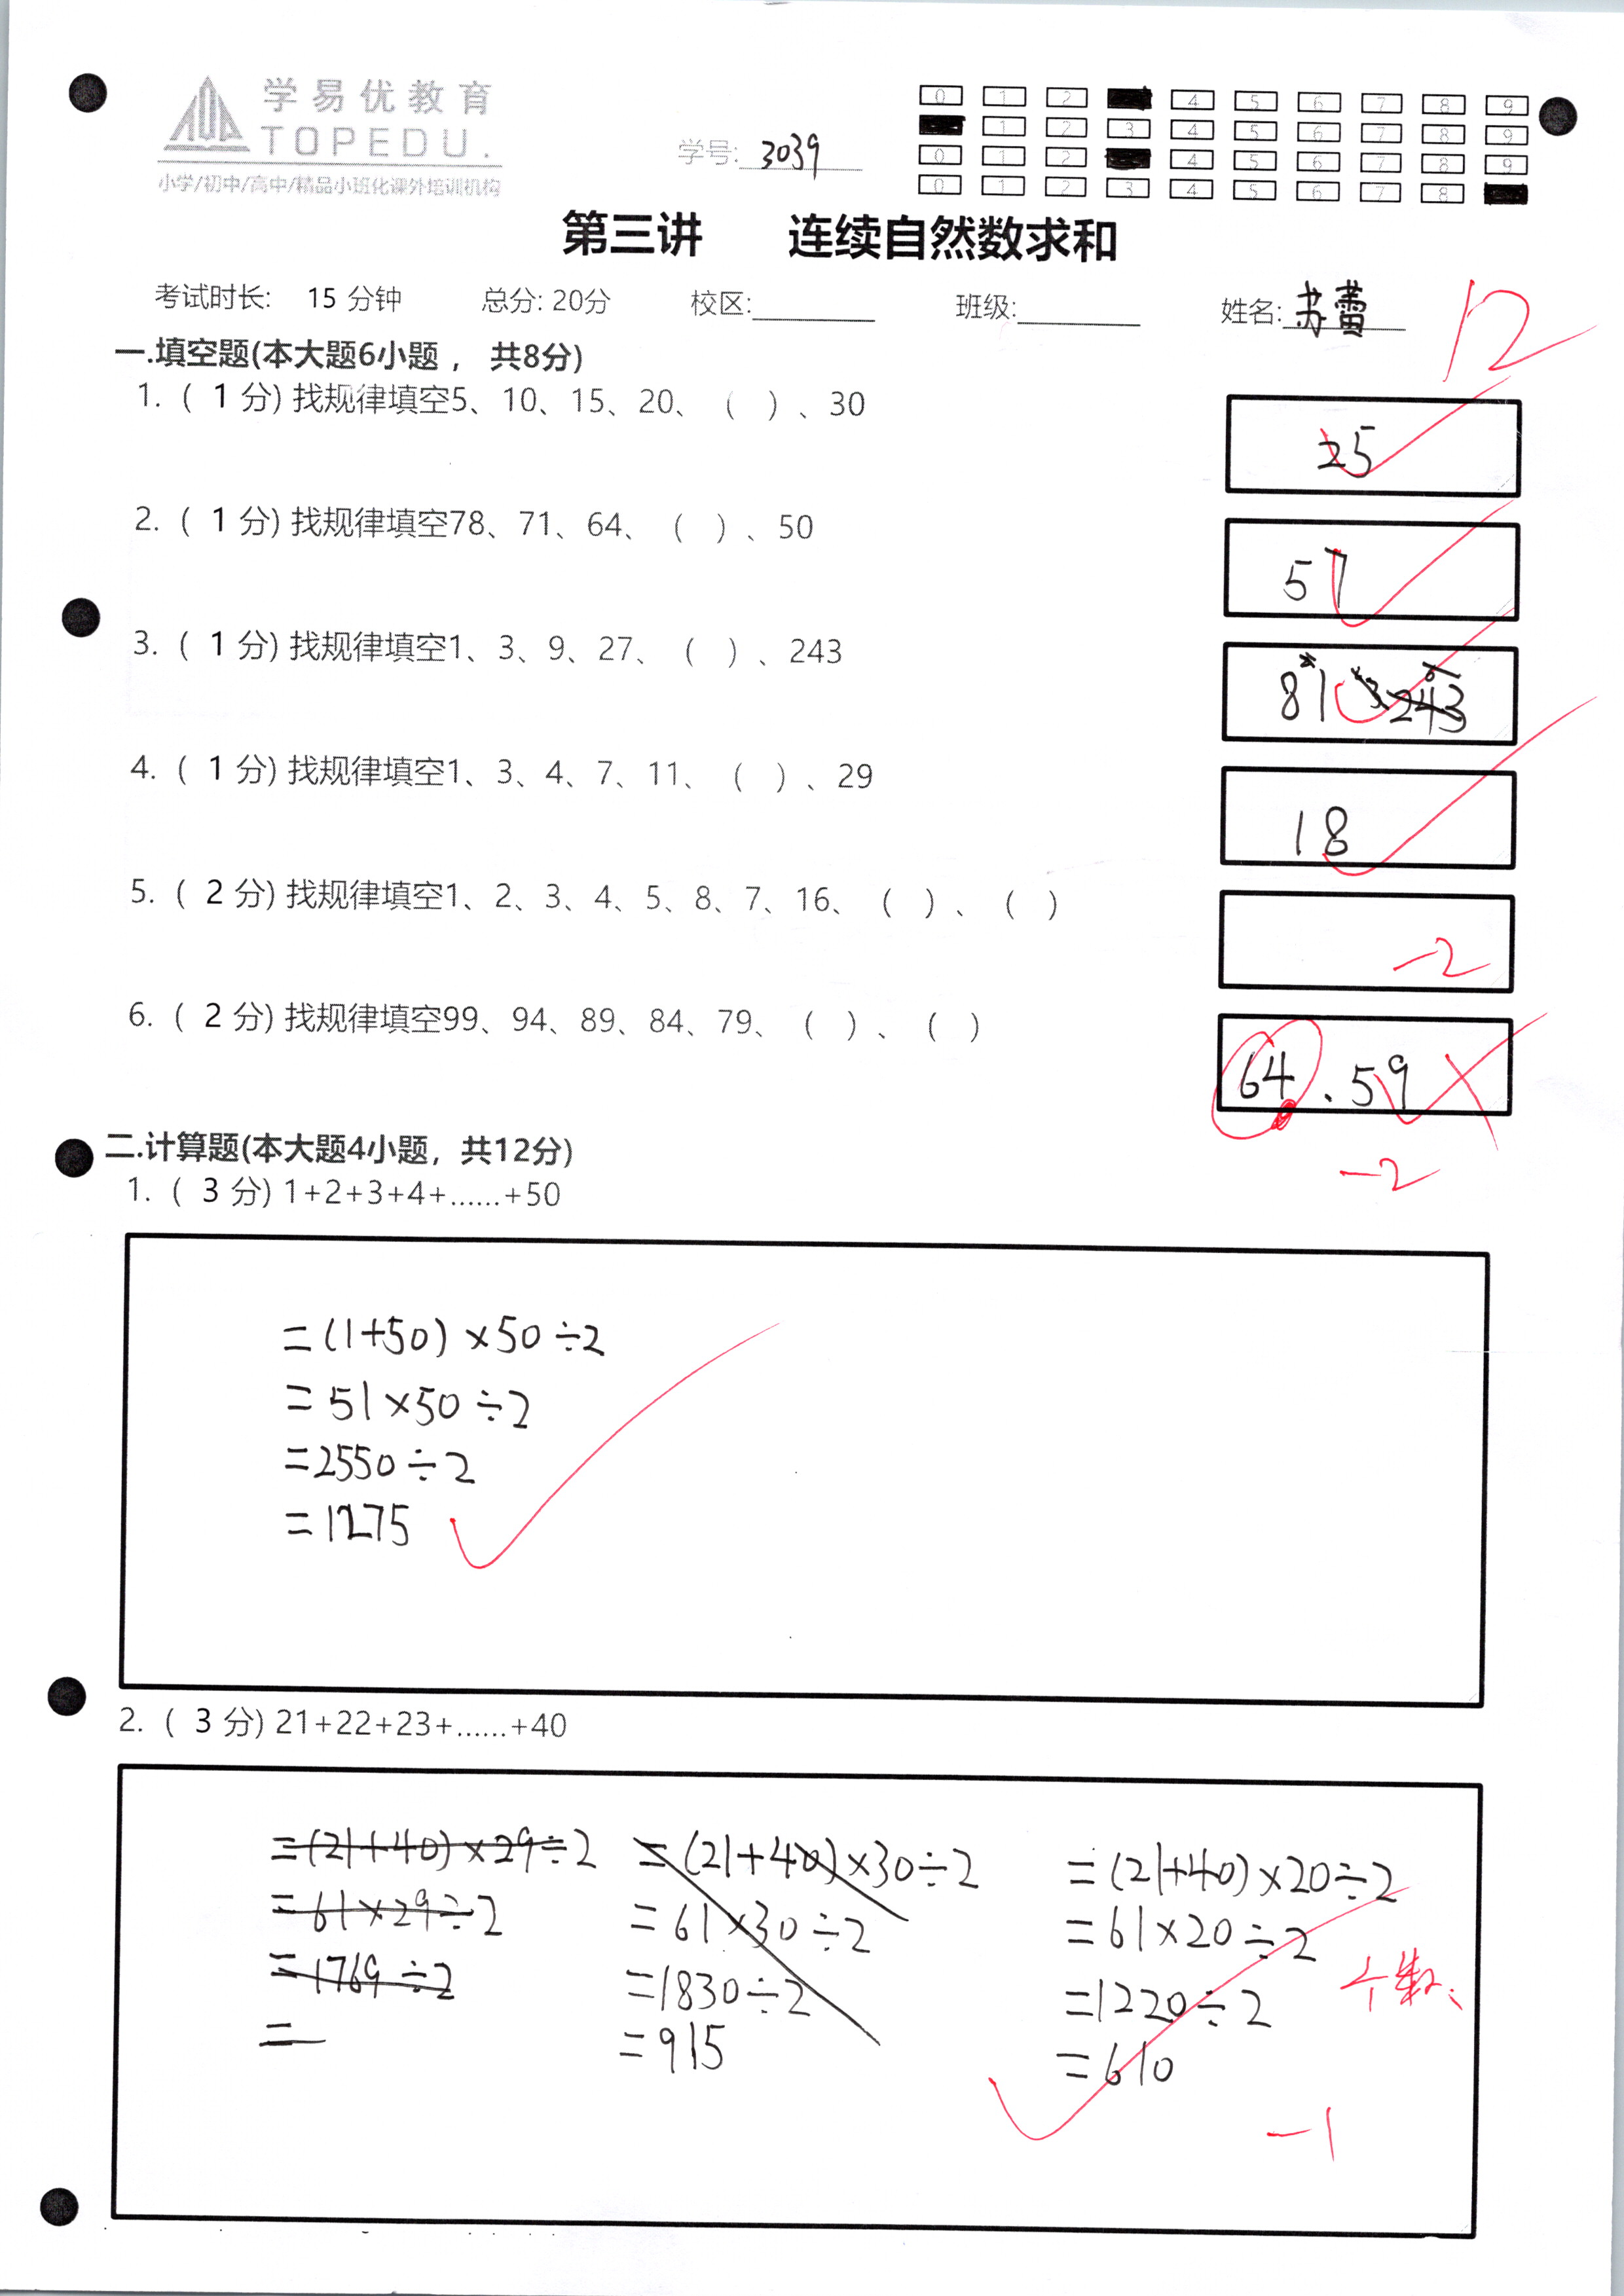 学易优教育
TOPEDU.
小学/初中/高中/精品小班化课外培训机构
学号: 3039
0 1 2 4 5 6 7 8 9
1 2 3 4 5 6 7 8 9
0 1 2 4 5 6 7 8 9
0 1 2 3 4 5 6 7 8
第三讲 连续自然数求和
考试时长: 15 分钟 总分: 20分 校区: 班级: 姓名: 苏蕾
12
一.填空题(本大题6小题， 共8分)
1. ( 1 分) 找规律填空5、10、15、20、( )、30
25
2. ( 1 分) 找规律填空78、71、64、( )、50
57
3. ( 1 分) 找规律填空1、3、9、27、( )、243
81
4. ( 1 分) 找规律填空1、3、4、7、11、( )、29
18
5. ( 2 分) 找规律填空1、2、3、4、5、8、7、16、( )、( )
-2
6. ( 2 分) 找规律填空99、94、89、84、79、( )、( )
64.59
-2
二.计算题(本大题4小题，共12分)
1. ( 3 分) 1+2+3+4+......+50
=(1+50)×50÷2
=51×50÷2
=2550÷2
=1275
2. ( 3 分) 21+22+23+......+40
=(21+40)×29÷2
=61×29÷2
=1769÷2
=
=(21+40)×30÷2
=61×30÷2
=1830÷2
=915
=(21+40)×20÷2
=61×20÷2
=1220÷2
=610
个数
-1